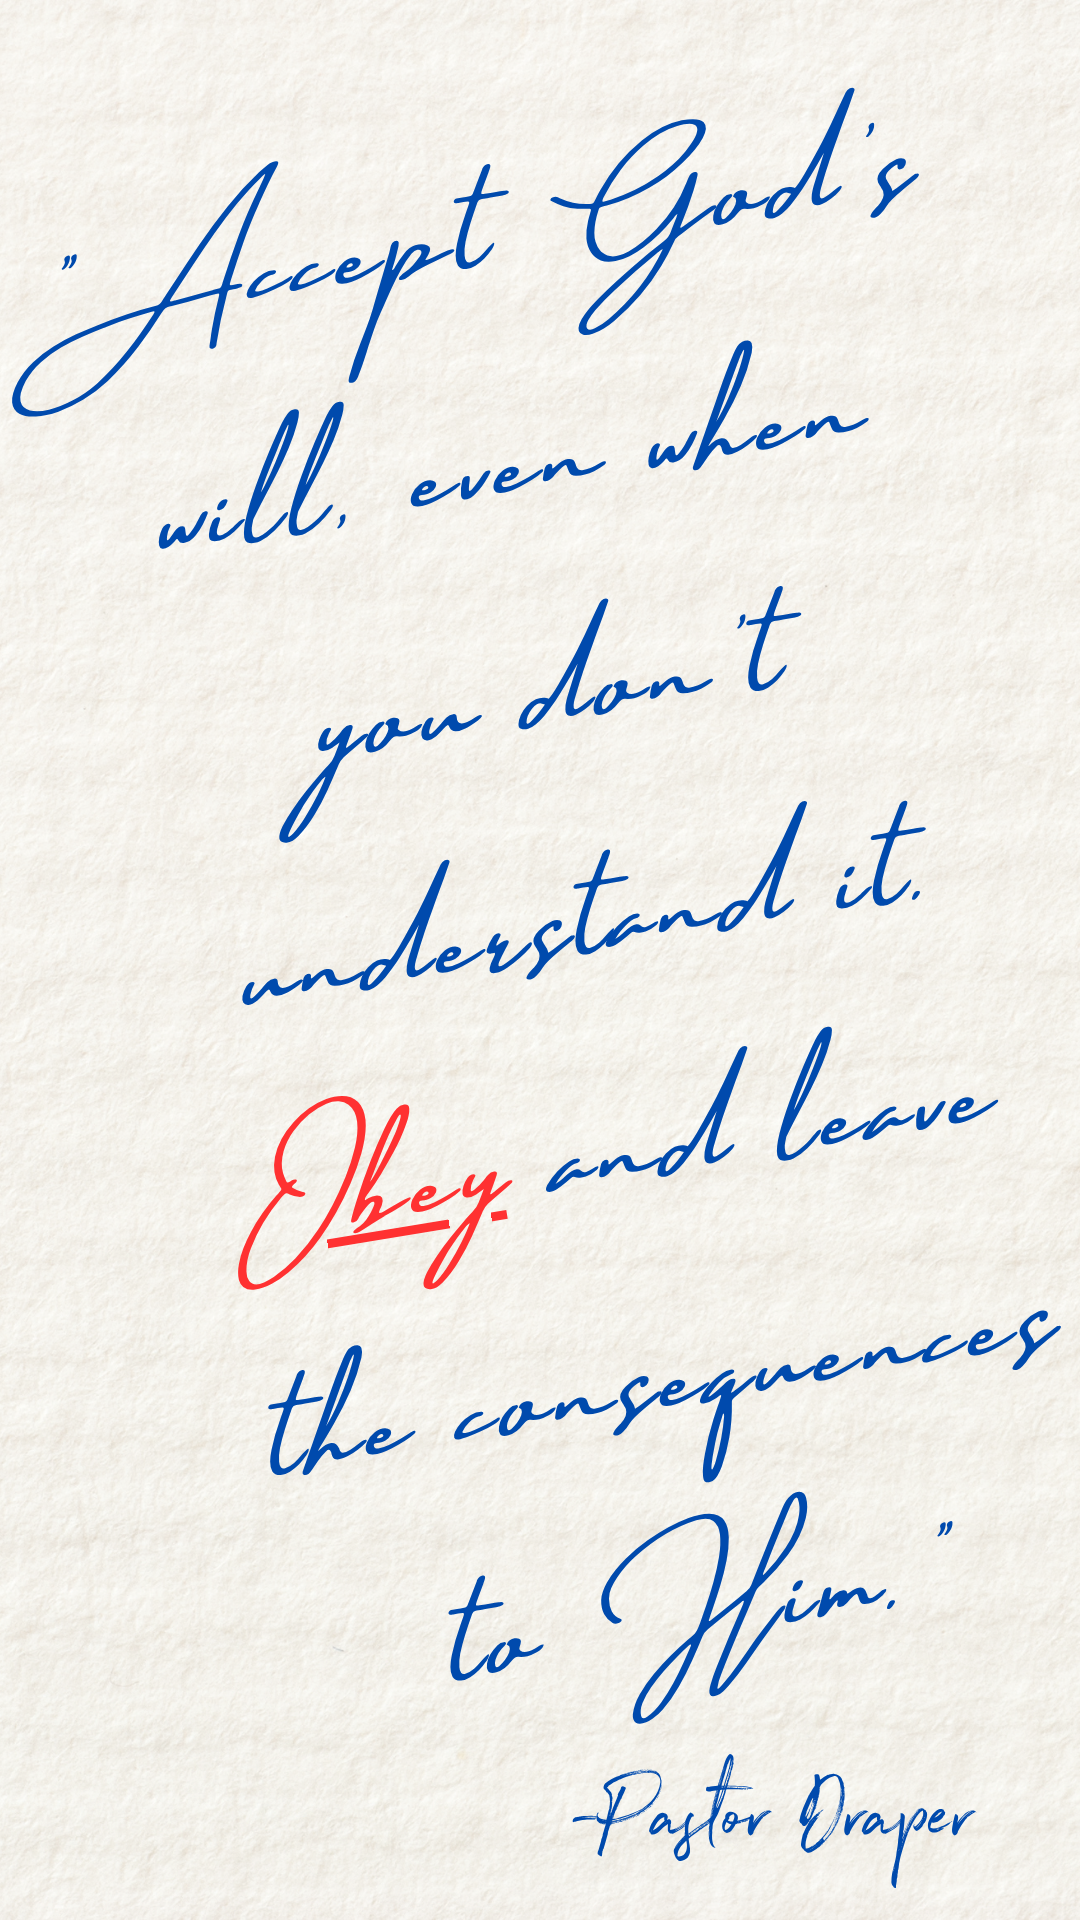 "Accept God's
will, even when
you don't
understand it.
Obey and leave
the consequences
to Him."
-Pastor Draper